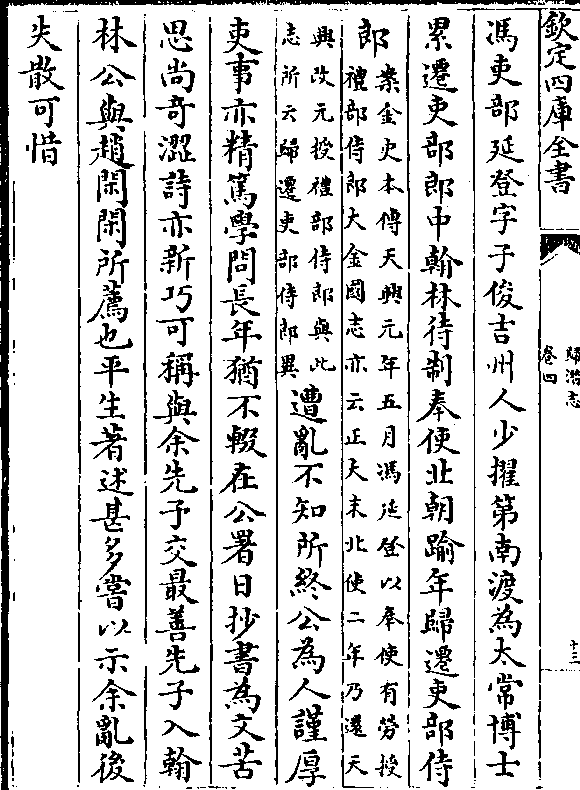 欽定四庫全書
歸潛志
卷四
十三
馮吏部延登字子俊吉州人少擢第南渡為太常博士
累遷吏部郎中翰林待制奉使北朝踰年歸遷吏部侍
郎
案金史本傳天興元年五月馮延登以奉使有勞授
禮部侍郎大金國志亦云正大末北使二年乃還天
興改元授禮部侍郎與此
志所云歸遷吏部侍郎異
遭亂不知所終公為人謹厚
吏事亦精篤學問長年猶不輟在公署日抄書為文苦
思尚奇澀詩亦新巧可稱與余先子交最善先子入翰
林公與趙閑閑所薦也平生著述甚多嘗以示余亂後
失散可惜